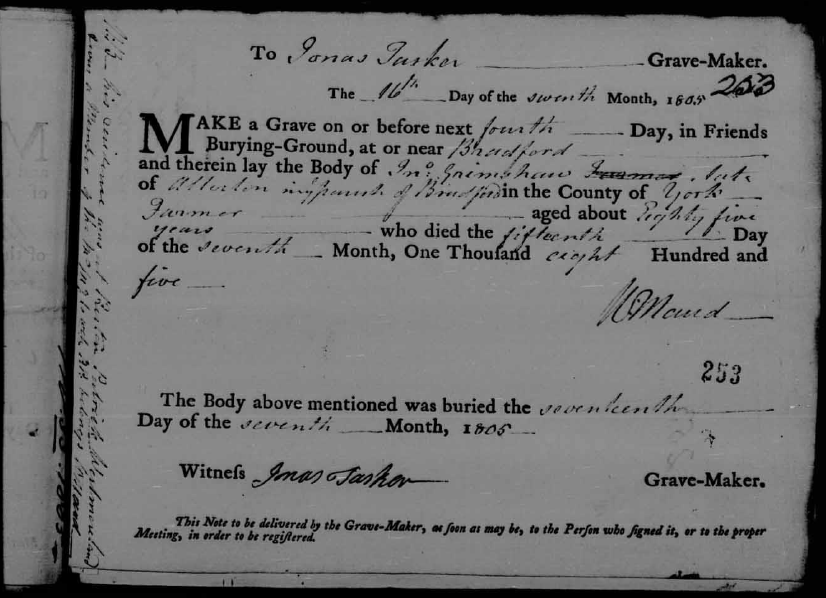 To Jonas Tasker Grave-Maker.
The 16th Day of the seventh Month, 1805 253
MAKE a Grave on or before next fourth Day, in Friends
Burying-Ground, at or near Bradford
and therein lay the Body of Jno. Grimshaw Farmer late
of Allerton in parish of Bradford in the County of York
Farmer aged about Eighty five
years who died the fifteenth Day
of the seventh Month, One Thouſand eight Hundred and
five
W Maud
253
The Body above mentioned was buried the seventeenth
Day of the seventh Month, 1805
Witneſs Jonas Tasker Grave-Maker.
This Note to be delivered by the Grave-Maker, as ſoon as may be, to the Perſon who ſigned it, or to the proper
Meeting, in order to be regiſtered.
his residence was at Preston Patrick Westmoreland
a Member of the